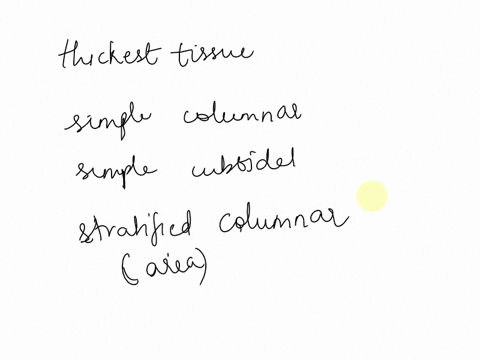 thickest tissue
simple columnar
simple cuboidel
stratified columnar
(area)